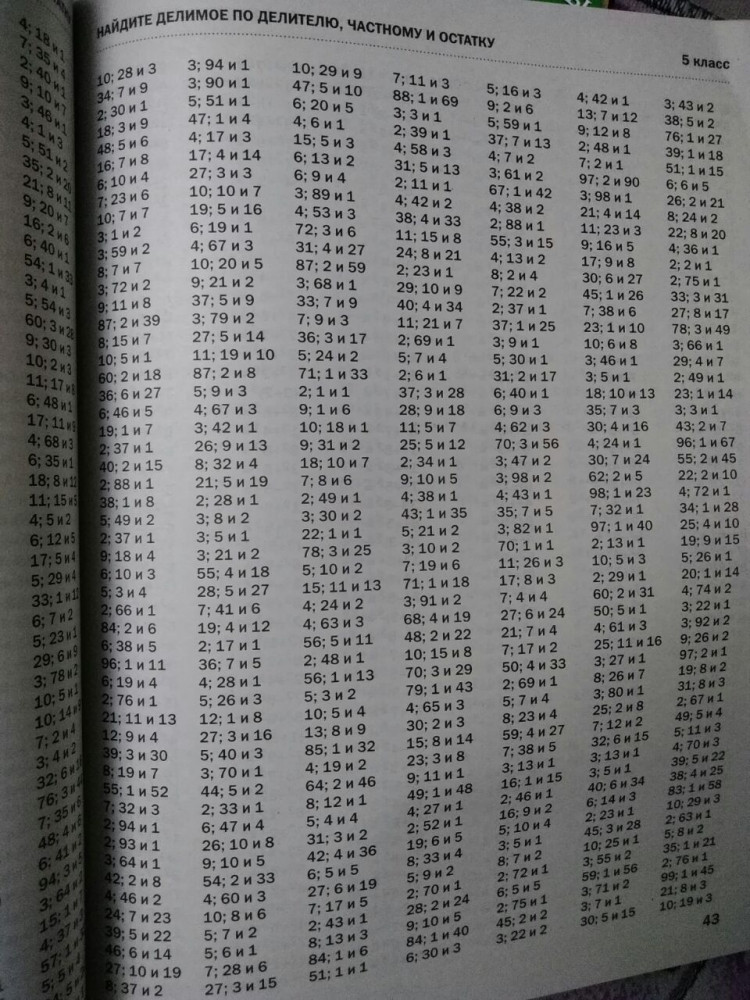 4; 18 и 1
7; 35 и 4
2; 40 и 1
9; 10 и 7
3; 46 и 1
4; 1 и 3
5; 51 и 2
35; 2 и
21; 8 и
9; 20 и 7
16; 2 и 6
6; 40 и 1
54; 1 и
3; 4 и 1
5; 54 и 3
60; 3 и
9; 30 и
10; 2 и 3
11; 17 и
6; 48 и 1
17; 11 и
4; 68 и 3
6; 35 и 1
18; 8 и
11; 15 и
4; 5 и 2
6; 12 и 5
17; 5 и 4
5; 29 и 4
33; 1 и
6; 7 и 2
5; 23 и 1
29; 6 и 9
3; 78 и 2
10; 5 и 1
10; 14 и
7; 2 и 4
3; 4 и 2
32; 6 и
76; 3 и
7; 35 и
48; 4 и
6; 41 и
94; 3 и
3; 64 и
15; 1 и
4; 37 и
57; 1 и
5; 5 и
НАЙДИТЕ ДЕЛИМОЕ ПО ДЕЛИТЕЛЮ, ЧАСТНОМУ И ОСТАТКУ
5 класс
10; 28 и 3
34; 7 и 9
2; 30 и 1
18; 3 и 9
48; 5 и 6
16; 7 и 8
6; 10 и 4
7; 23 и 6
10; 7 и 7
3; 1 и 2
3; 59 и 2
8; 7 и 7
3; 72 и 2
9; 11 и 8
87; 2 и 39
8; 15 и 7
10; 5 и 1
60; 2 и 18
36; 6 и 27
6; 46 и 5
19; 1 и 7
2; 37 и 1
40; 2 и 15
2; 88 и 1
38; 1 и 8
5; 49 и 2
2; 37 и 1
9; 18 и 4
6; 10 и 3
5; 3 и 4
2; 66 и 1
84; 2 и 6
6; 38 и 5
96; 1 и 11
6; 19 и 4
2; 76 и 1
21; 11 и 13
12; 9 и 4
39; 3 и 30
8; 19 и 7
55; 1 и 52
7; 32 и 3
2; 94 и 1
2; 93 и 1
3; 64 и 1
42; 2 и 8
4; 46 и 2
24; 7 и 23
39; 5 и 22
46; 6 и 14
27; 10 и 19
8; 37 и 2
3; 94 и 1
3; 90 и 1
5; 51 и 1
47; 1 и 4
4; 17 и 3
17; 4 и 14
27; 3 и 3
10; 10 и 7
19; 5 и 16
6; 19 и 1
4; 67 и 3
10; 20 и 5
9; 21 и 2
37; 5 и 9
3; 79 и 2
27; 5 и 14
11; 19 и 10
87; 2 и 8
5; 9 и 3
4; 67 и 3
3; 42 и 1
26; 9 и 13
8; 32 и 4
21; 5 и 19
2; 28 и 1
3; 8 и 2
3; 5 и 1
3; 21 и 2
55; 4 и 18
28; 5 и 27
7; 41 и 6
19; 4 и 12
2; 17 и 1
36; 7 и 5
4; 28 и 1
5; 26 и 3
12; 1 и 8
27; 3 и 16
5; 40 и 3
3; 70 и 1
44; 5 и 2
2; 33 и 1
6; 47 и 4
26; 10 и 8
9; 10 и 5
54; 2 и 33
4; 60 и 3
10; 8 и 6
5; 7 и 2
5; 6 и 1
7; 28 и 6
27; 3 и 15
10; 29 и 9
47; 5 и 10
6; 20 и 5
4; 6 и 1
15; 5 и 3
6; 13 и 2
6; 9 и 4
3; 89 и 1
4; 53 и 3
72; 3 и 6
31; 4 и 27
87; 2 и 59
3; 68 и 1
33; 7 и 9
7; 9 и 3
36; 3 и 17
5; 24 и 2
71; 1 и 33
2; 1 и 1
9; 1 и 6
10; 18 и 1
9; 31 и 2
18; 10 и 7
7; 8 и 6
2; 49 и 1
3; 30 и 2
22; 1 и 1
78; 3 и 25
5; 10 и 2
15; 11 и 13
4; 24 и 2
4; 63 и 3
56; 5 и 11
2; 48 и 1
56; 1 и 13
5; 3 и 2
10; 5 и 4
13; 8 и 9
85; 1 и 32
4; 19 и 2
64; 2 и 46
8; 12 и 1
5; 4 и 4
31; 3 и 2
42; 4 и 36
6; 5 и 5
27; 6 и 19
7; 17 и 5
2; 43 и 1
8; 13 и 3
84; 1 и 6
51; 1 и 1
7; 11 и 3
88; 1 и 69
3; 3 и 1
2; 39 и 1
4; 58 и 3
31; 5 и 13
2; 11 и 1
4; 42 и 2
38; 4 и 33
11; 15 и 8
24; 8 и 21
2; 23 и 1
29; 10 и 9
40; 4 и 34
11; 21 и 7
2; 69 и 1
5; 7 и 4
2; 6 и 1
37; 3 и 28
28; 9 и 18
11; 5 и 7
25; 5 и 12
2; 34 и 1
9; 10 и 5
4; 38 и 1
43; 1 и 35
5; 21 и 2
3; 10 и 2
7; 19 и 6
71; 1 и 18
3; 91 и 2
68; 4 и 19
48; 2 и 22
10; 15 и 8
70; 3 и 29
79; 1 и 43
4; 65 и 3
30; 2 и 3
15; 8 и 14
23; 3 и 8
9; 11 и 1
49; 1 и 48
4; 27 и 1
2; 52 и 1
19; 6 и 5
8; 33 и 4
5; 9 и 2
2; 70 и 1
28; 2 и 24
9; 10 и 5
84; 1 и 40
6; 30 и 3
5; 16 и 3
9; 2 и 6
5; 59 и 1
37; 7 и 13
4; 7 и 2
3; 61 и 2
67; 1 и 42
4; 38 и 2
2; 88 и 1
55; 3 и 15
4; 13 и 2
8; 2 и 4
7; 22 и 2
2; 37 и 1
37; 1 и 25
3; 9 и 1
5; 30 и 1
31; 2 и 17
6; 40 и 1
6; 9 и 3
4; 62 и 3
70; 3 и 56
3; 47 и 2
3; 98 и 2
4; 43 и 1
35; 7 и 5
3; 82 и 1
70; 1 и 1
11; 26 и 3
17; 8 и 3
7; 4 и 4
27; 6 и 24
21; 7 и 4
7; 17 и 2
50; 4 и 33
2; 69 и 1
5; 7 и 4
8; 23 и 4
59; 4 и 27
7; 38 и 5
3; 13 и 1
16; 1 и 15
2; 46 и 1
16; 9 и 2
5; 10 и 4
3; 5 и 1
8; 7 и 2
2; 72 и 1
6; 5 и 5
2; 75 и 1
45; 2 и 2
3; 22 и 2
4; 42 и 1
13; 7 и 12
9; 12 и 8
2; 48 и 1
7; 2 и 1
97; 2 и 90
3; 98 и 1
21; 4 и 14
11; 23 и 3
9; 16 и 5
17; 9 и 8
30; 6 и 27
45; 1 и 26
7; 38 и 6
23; 1 и 10
10; 6 и 8
3; 46 и 1
3; 5 и 1
18; 10 и 13
35; 7 и 3
30; 4 и 16
4; 24 и 1
30; 7 и 24
62; 2 и 5
98; 1 и 23
7; 32 и 1
97; 1 и 40
2; 13 и 1
10; 5 и 3
2; 29 и 1
60; 2 и 31
50; 5 и 1
4; 61 и 3
25; 11 и 16
3; 27 и 1
8; 26 и 7
3; 80 и 1
25; 2 и 8
7; 12 и 2
32; 6 и 15
3; 13 и 1
3; 5 и 1
40; 6 и 34
6; 14 и 3
2; 23 и 1
45; 3 и 28
10; 25 и 1
3; 55 и 2
59; 1 и 56
3; 71 и 2
3; 7 и 1
30; 5 и 15
3; 43 и 2
38; 5 и 2
76; 1 и 27
39; 1 и 18
51; 1 и 15
6; 6 и 5
26; 2 и 21
8; 24 и 2
22; 8 и 20
4; 36 и 1
2; 2 и 1
2; 75 и 1
33; 3 и 31
27; 8 и 17
78; 3 и 49
3; 66 и 1
29; 4 и 7
2; 49 и 1
23; 1 и 14
3; 3 и 1
43; 2 и 7
96; 1 и 67
55; 2 и 45
22; 2 и 10
4; 72 и 1
34; 1 и 28
25; 4 и 10
19; 9 и 15
5; 26 и 1
20; 1 и 14
4; 74 и 2
3; 22 и 1
3; 92 и 2
9; 26 и 2
97; 2 и 1
19; 8 и 2
31; 8 и 3
2; 67 и 1
49; 5 и 4
5; 11 и 3
4; 70 и 3
39; 5 и 22
38; 4 и 25
83; 1 и 58
10; 29 и 3
2; 63 и 1
5; 8 и 2
35; 1 и 21
2; 76 и 1
99; 1 и 45
21; 8 и 3
10; 19 и 3
43